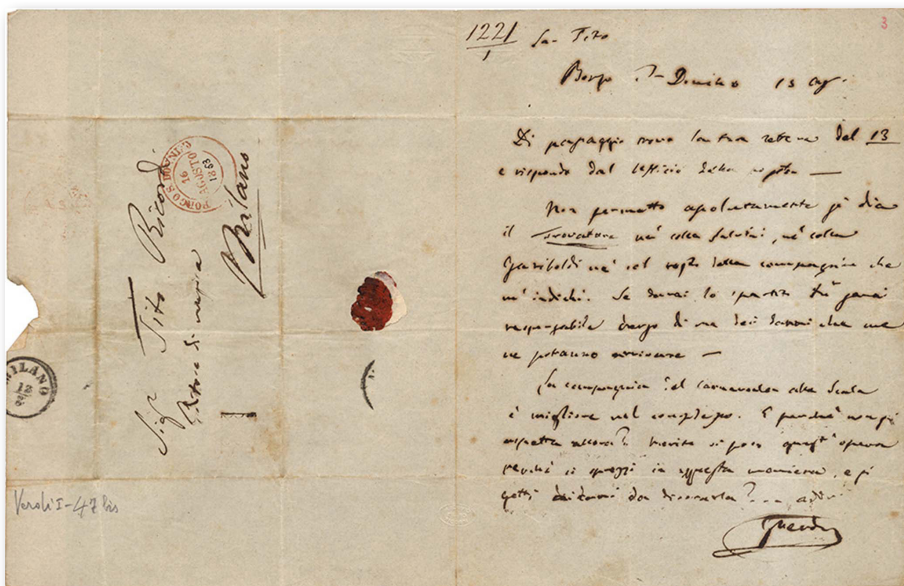 1221
1
3
Car. Tito
Borgo S. Donnino 15 Ag.
Di passaggio trovo la tua lettera del 13
e rispondo dal Ufficio della posta —
Non permetto assolutamente si dia
il Trovatore nè colla Salvini, nè colla
Gariboldi nè col resto della compagnia che
m'indichi. Se darai lo spartito tu sarai
responsabile verso di me dei danni che me
ne potranno avvenire —
La compagnia del carnevale alla Scala
è migliore nel complesso. E perchè non si
aspetta allora? Merita sì poco quest'opera
perchè si sprezzi in questa maniera, e si
getti ai cani da divorarla?... addio
GVerdi
Sigr Tito Ricordi
Editore di musica
Milano
BORGO S. DONNINO
16
AGOSTO
1853
MILANO
Veroli I-47 bis